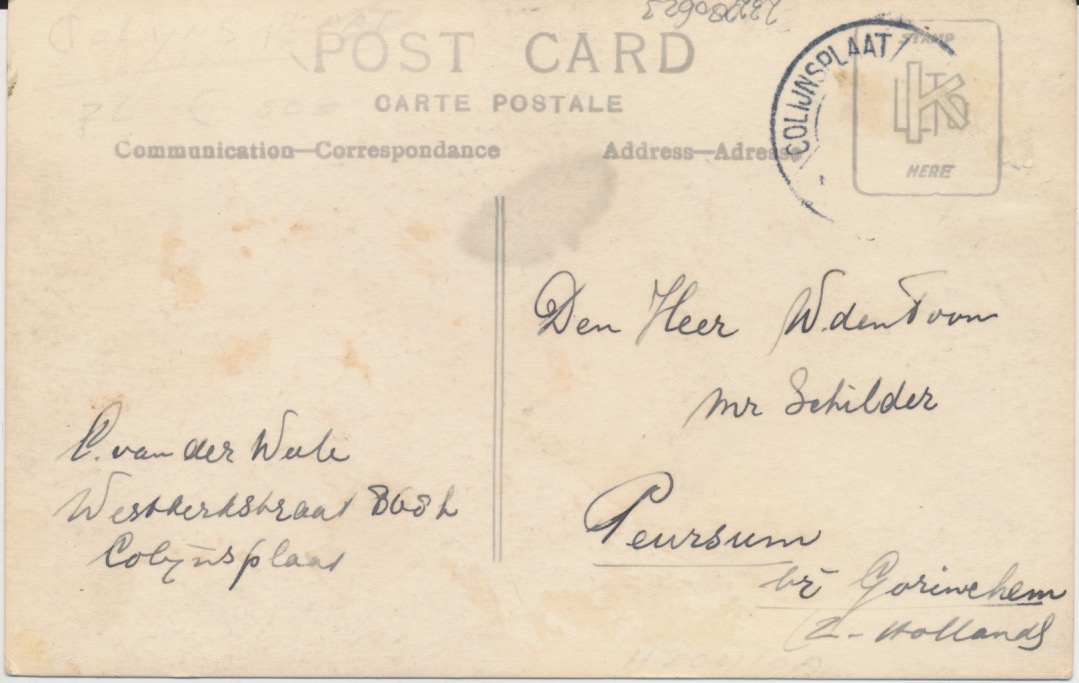 POST CARD
CARTE POSTALE
Communication—Correspondance
Address—Adresse
COLIJNSPLAAT
STAMP
HERE
Den Heer W. den Toom
Mr Schilder
Peursum
bij Gorinchem
Z-Holland
C. van der Weele
Westkerkstraat
Colijnsplaat